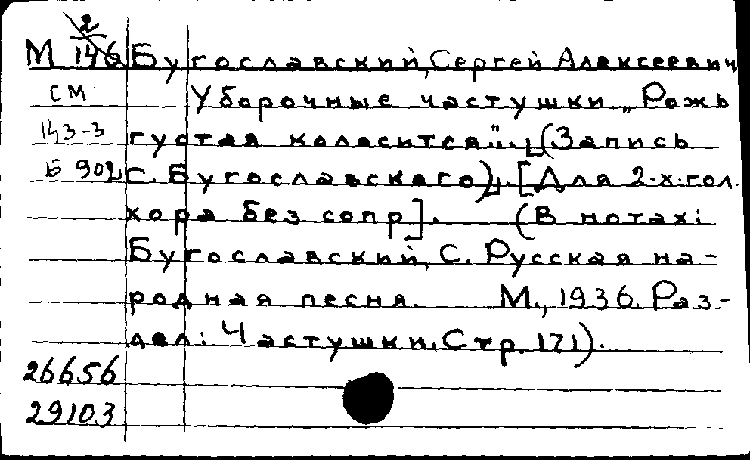 2
М 146 Бугославский, Сергей Алексеевич
см Уборочные частушки „Рожь
143-3 густая колосится". (Запись
Б 902 С. Бугославского). [Для 2-х гол.
хора без сопр]. (В нотах:
Бугославский, С. Русская на-
родная песня. М., 1936. Раз-
дел: Частушки. Стр. 171).
26656
29103